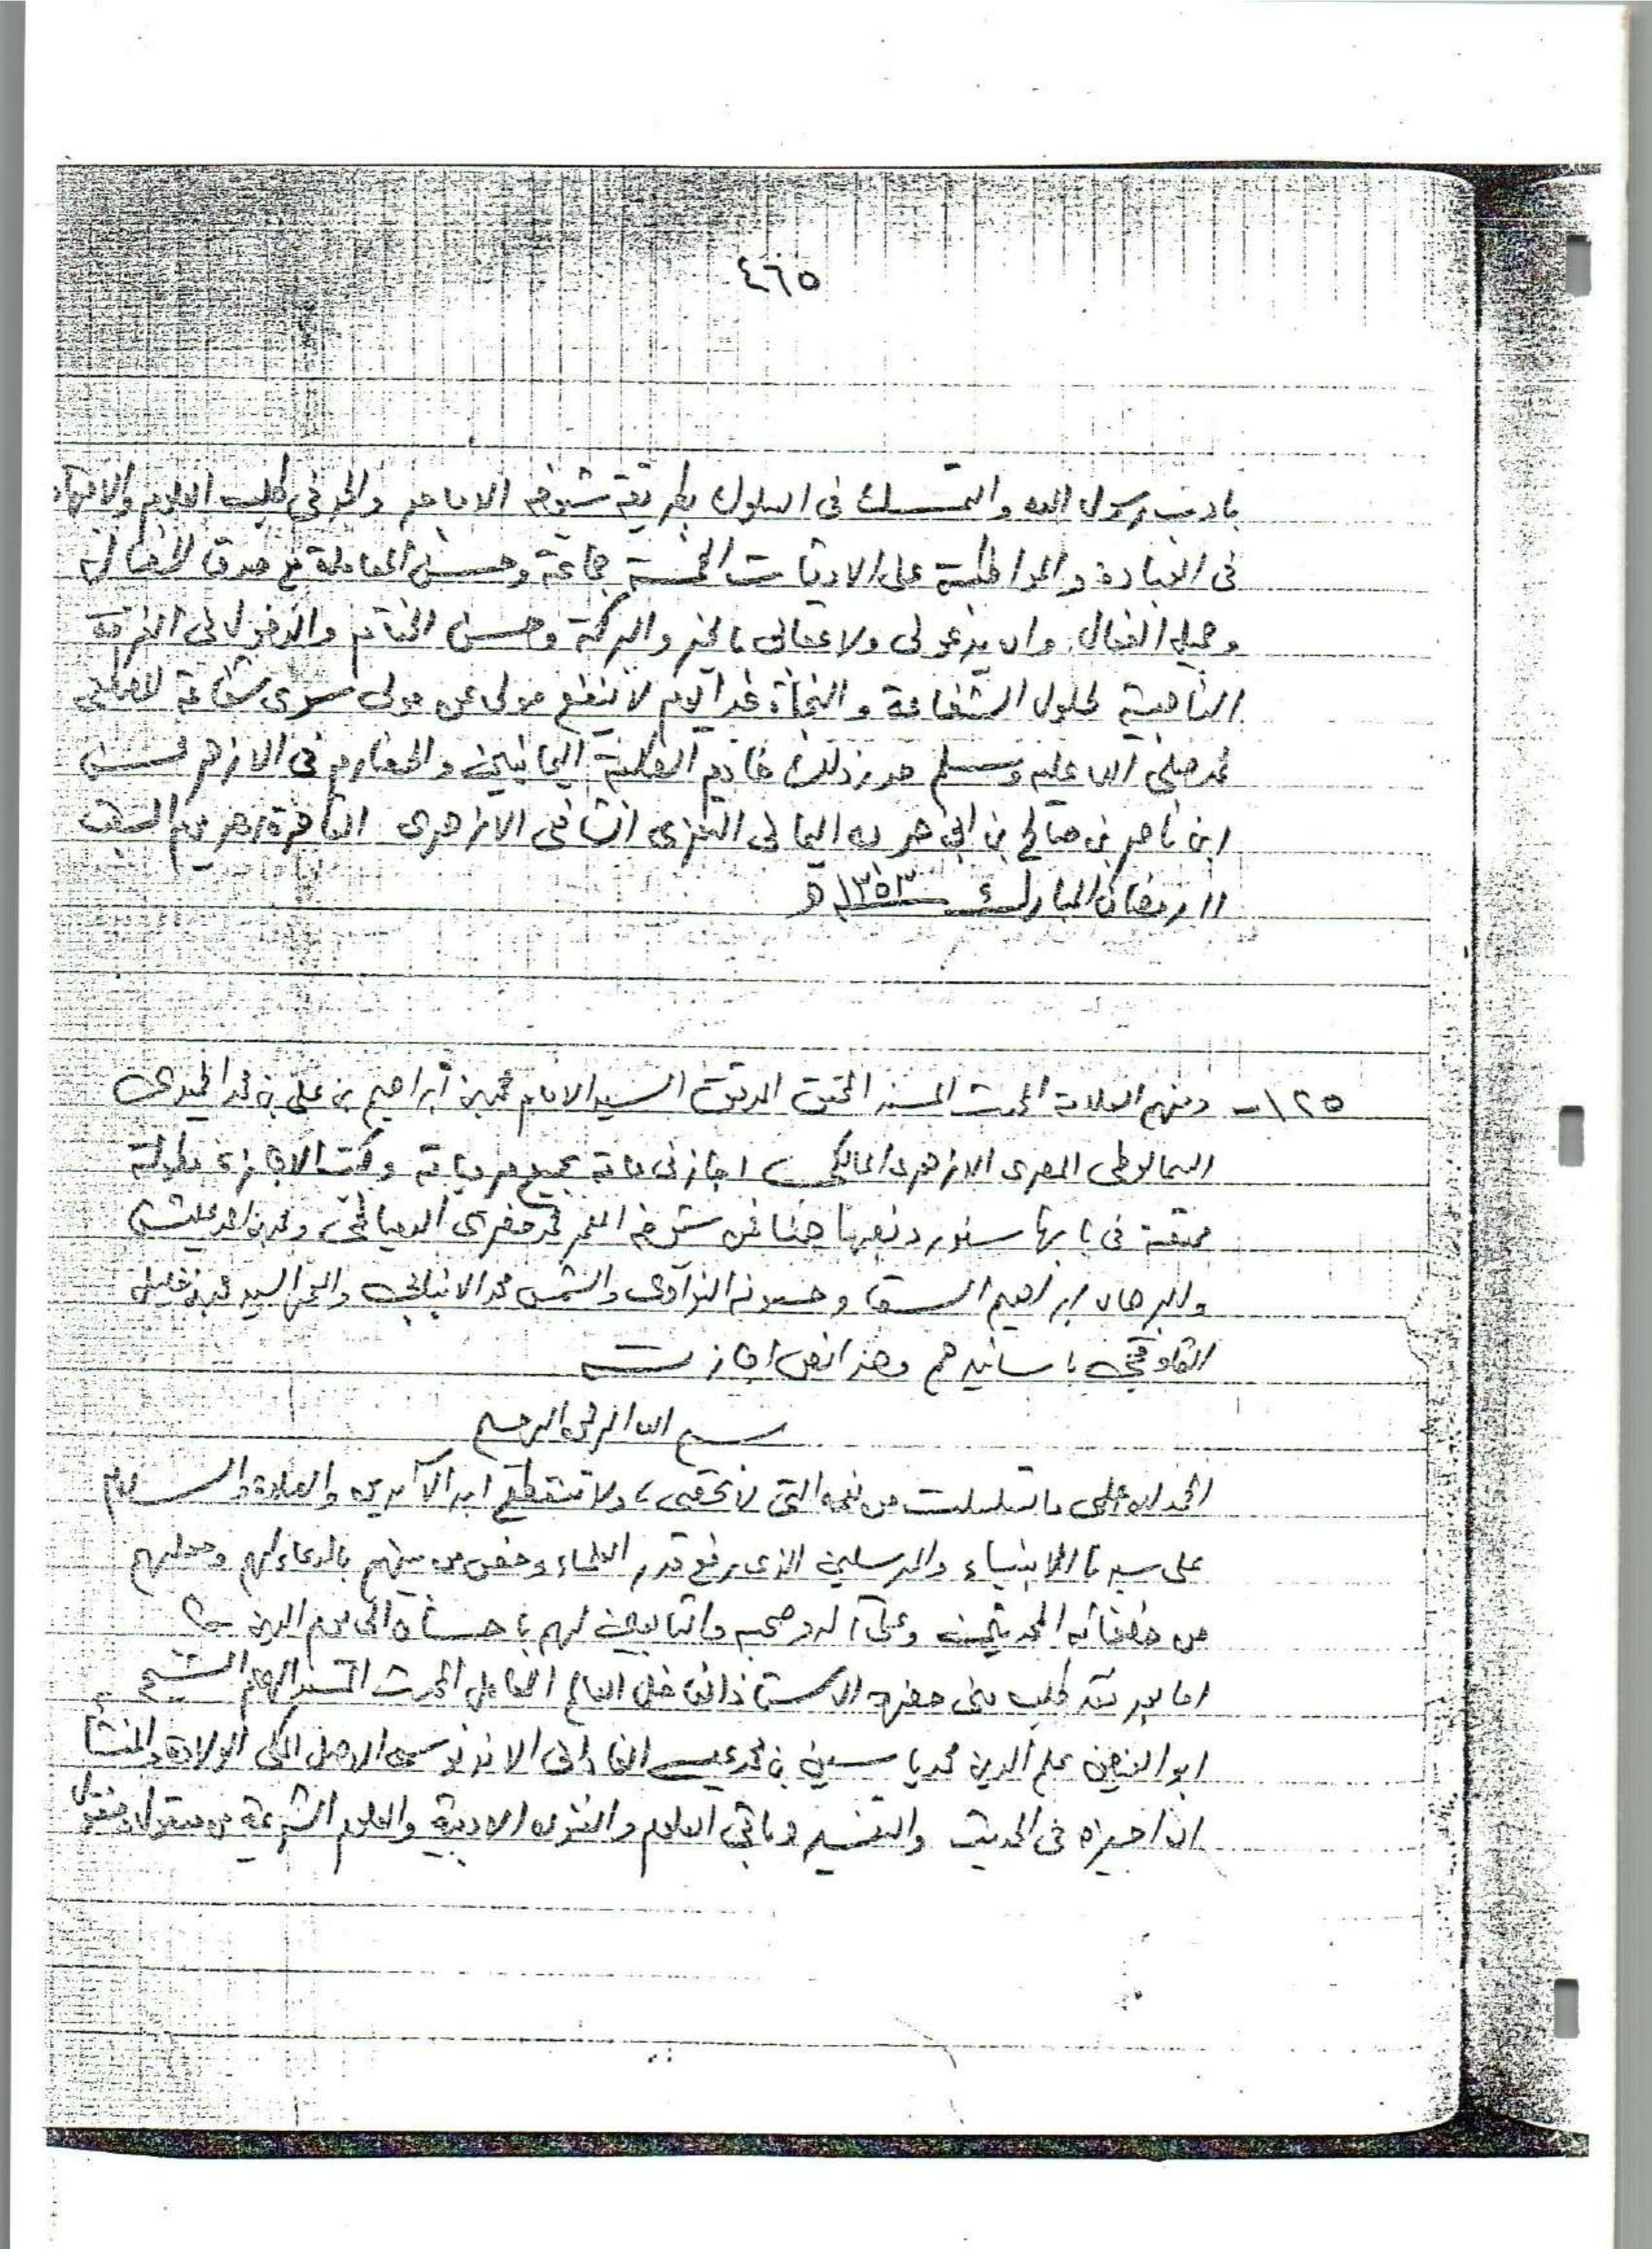 ٤٦٥
بأدب رسول الله والتمسك في السلوك بطريقة شيوخه الاماجد والجد في طلب العلوم والانتهاء
في العبادة والمواظبة على الاوقات الخمسة جماعة وحسن المعاملة مع صدق
وجميل الفعال وان يدعو لي ولاعقابي بالخير والبركة وحسن الختام والدخول في الفرقة
الناجية لحلول الشفاعة والنجاة غدا يوم لا ينفع مولى عن مولى سوى شفاعة المصطفى
محمد صلى الله عليه وسلم حرر ذلك خادم الطلبة اليمانيين والحضارم في الازهر حسن
ابن ناصر بن صالح بن اليماني التعزى الشافعى الازهرى القاهرة مصر يوم السبت
١١ رمضان المبارك ١٣٥٣ هـ
١٢٥ - ومنهم العلامة المحدث المسند المحقق المدقق السيد الامام محمد بن أبراهيم بن على بن محمد الحميدى
السمالوطى المصرى الازهرى المالكى، اجازنى عامة بجميع مروياته وكتب الاجازة مطولة
ممتعة فى بابها سنورد نصها هنا فمن شيوخه محمد خضرى الدمياطى، ومحمد بن احمد عليش
والبرهان ابراهيم السقا وحسونه النواوى والشمس محمد الانبابى والسيد محمد بن خليل
القاوقجى باسانيدهم وهذا نص اجازته
بسم الله الرحمن الرحيم
الحمد لله على ما تسلسلت من نعمه التى لا تحصى، ولا تنقطع ابد الآبدين والصلاة والسلام
على سيدنا الانبياء والمرسلين الذى رفع قدر العلماء وخص من بينهم بالدعاء لهم وجعلهم
من خلفائه المحدثين وعلى آله وصحبه والتابعين لهم باحسان الى يوم الدين
اما بعد فقد طلب منى حضرة الاستاذ الفاضل العالم العامل المحدث المسند الهمام الشيخ
ابو الفيض علم الدين محمد ياسين بن محمد عيسى الفادانى الاندونوسى الاصل المكى الولادة والمنشأ
ان اجيزه فى الحديث والتفسير وباقى العلوم والفنون الادبية والعلوم الشرعية من معقول ومنقول